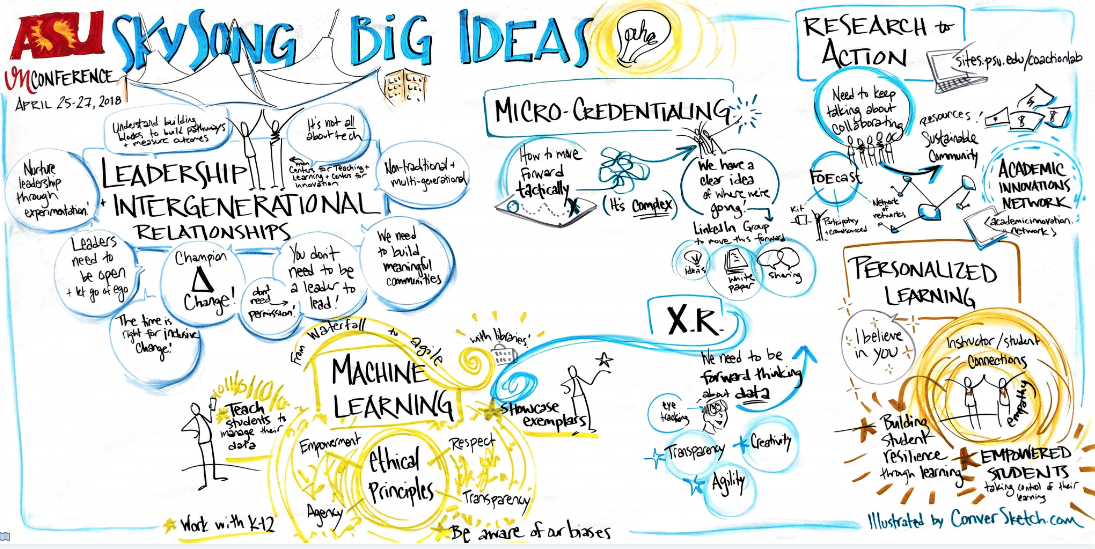 ASU
SKYSONG BIG IDEAS
aha
UNCONFERENCE
APRIL 25-27, 2018
Understand building
blocks to build pathways
+ measure outcomes
It's not all
about tech
Center for Teaching +
Learning + Center for
innovation
Nurture
leadership
through
experimentation!
LEADERSHIP
+ INTERGENERATIONAL
RELATIONSHIPS
Non-traditional +
multi-generational
Leaders
need to
be open
+ let go of ego
Champion
Δ
Change!
don't
need
permission!
You don't
need to be
a leader to
lead!
We need
to build
meaningful
communities
The time is
right for inclusive
Change!
MICRO-CREDENTIALING
How to move
forward
tactically
X
(It's complex)
We have a
clear idea
of where we're
going,
LinkedIn Group
to move this forward
ideas
white
paper
sharing
RESEARCH to
ACTION
sites.psu.edu/coactionlab
Need to keep
talking about
collaborating
resources!
$
$
Sustainable
Community
FOECast
Kit
Network of
networks
Participatory
ACADEMIC
INNOVATIONS
NETWORK
(academicinnovation.
network)
PERSONALIZED
LEARNING
I believe
in you
Instructor/student
Connections
empathy
Building
student
resilience
through learning
EMPOWERED
STUDENTS
taking control of their
learning
X.R.
We need to be
forward thinking
about data
eye
tracking
Transparency
Creativity
Agility
From Waterfall to agile
with libraries!
MACHINE
LEARNING
showcase
exemplars
Teach
students to
manage their
data
Empowerment
Respect
ethical
Principles
Agency
Transparency
Work with K-12
Be aware of our biases
Illustrated by ConverSketch.com